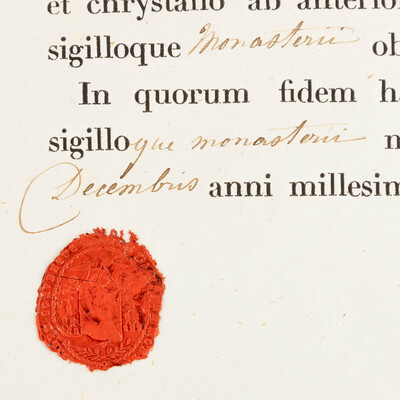 et chrystallo ab anterior
sigilloque Monasterii ob
In quorum fidem ha
sigilloque monasterii m
Decembris anni millesim